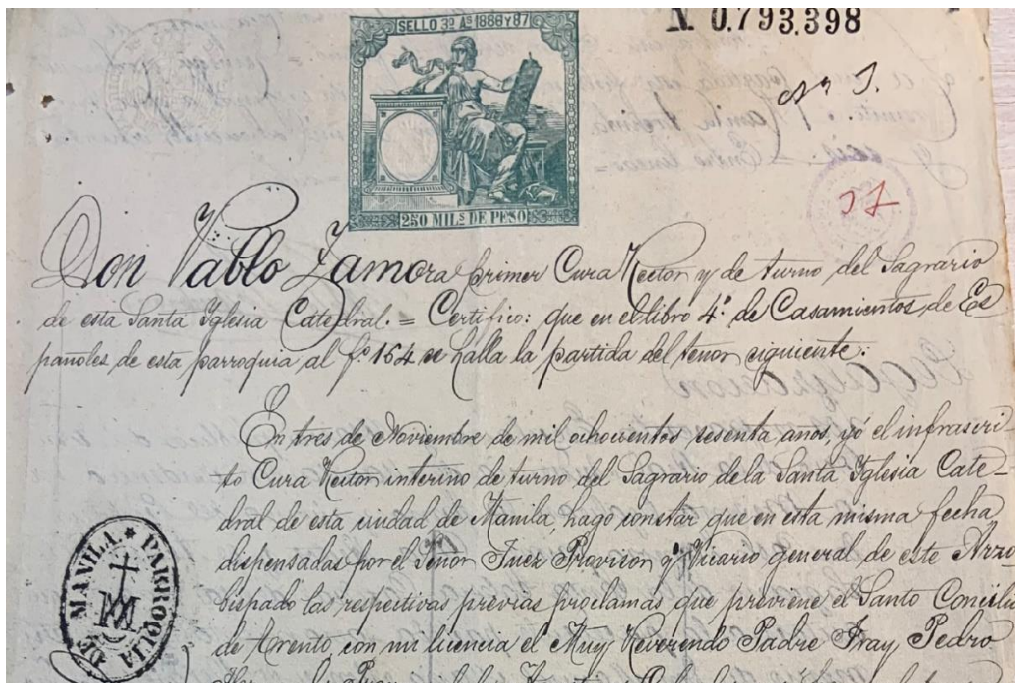 SELLO 3º Aˢ 1886 Y 87
N. 0.793.398
250 MILˢ DE PESO
37
Don Pablo Zamora primer Cura Rector y de turno del Sagrario
de esta Santa Yglesia Catedral. = Certifico: que en el libro 4º de Casamientos de Es
pañoles de esta parroquia al fº 164 se halla la partida del tenor siguiente:
En tres de Noviembre de mil ochocientos sesenta años, yó el infrascri-
to Cura Rector interino de turno del Sagrario de la Santa Yglesia Cate-
dral de esta ciudad de Manila, hago constar que en esta misma fecha
dispensadas por el Señor Juez Provisor y Vicario general de este Arzo
bispado las respectivas previas proclamas que previene el Santo Concilio
de Trento, con mi licencia el Muy Reverendo Padre Fray Pedro
PARROQUIA DE MANILA